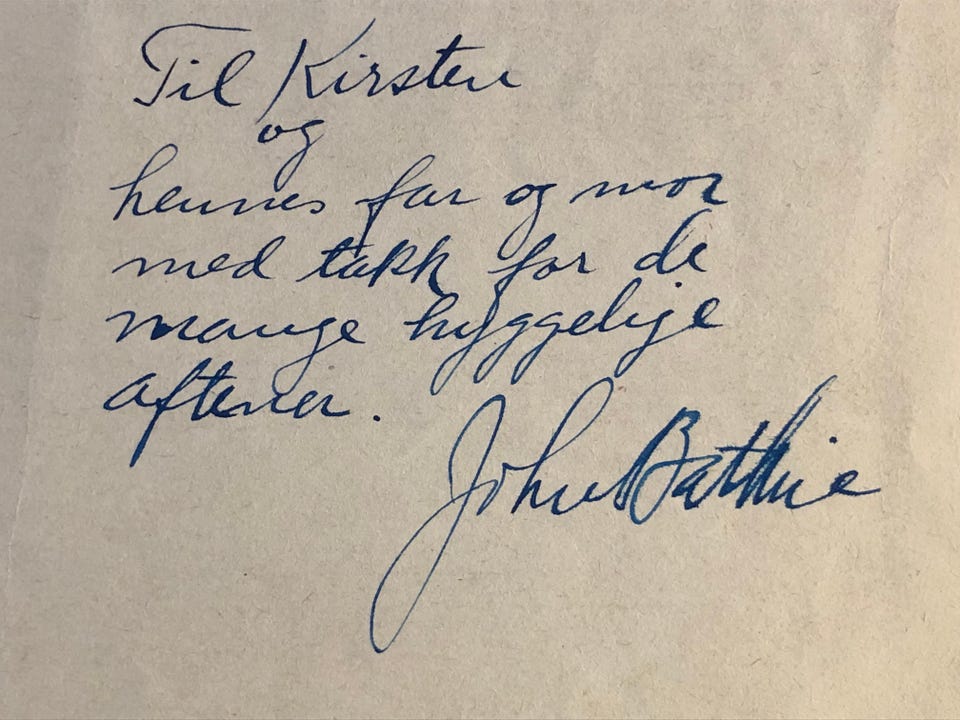 Til Kirsten
og
hennes far og mor
med takk for de
mange hyggelige
aftener.
John Bathie